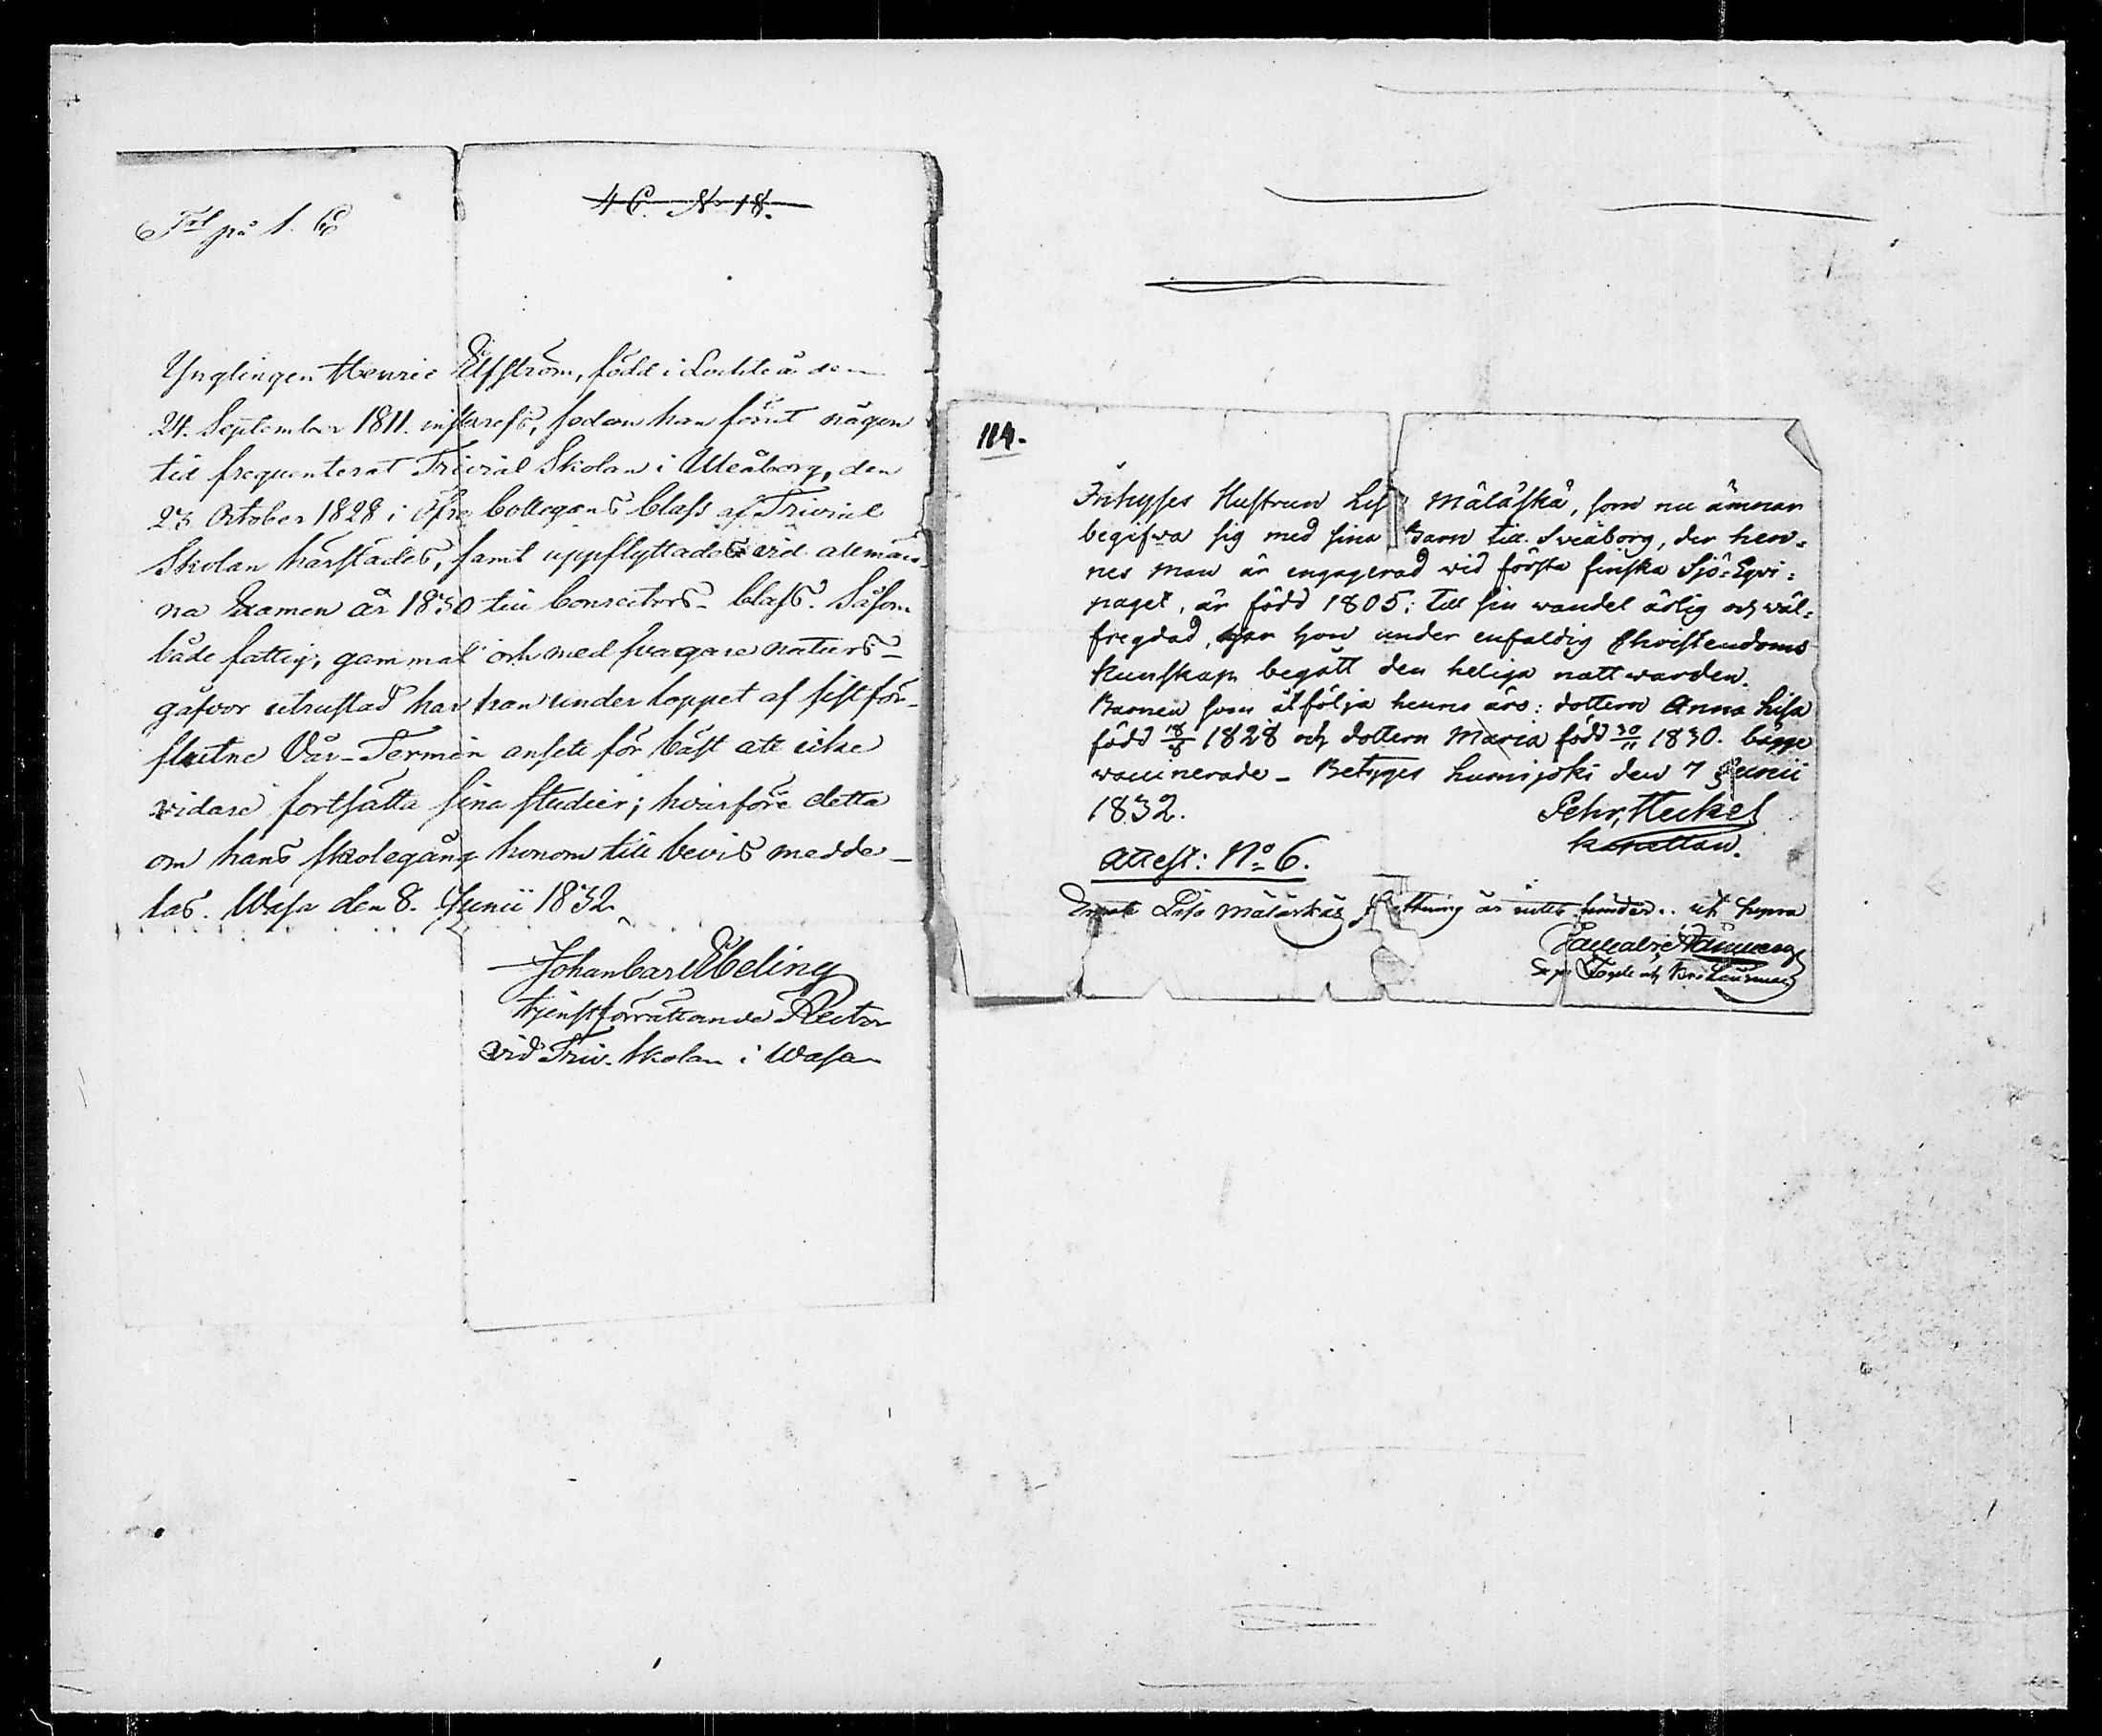 på 1. C
4 C. N 18.
Ynglingen Henric Elfström, född i Lochteå den
24. September 1811. inskrefs, sedan han förut någon
tid frequenterat Trivial Skolan i Uleåborg, den
23 October 1828 i Öfre Collegans Class af Trivial
Skolan härstädes, samt uppflyttades vid allmän-
na Examen år 1830 till Conrectors-Class. Såsom
både fattig, gammal och med svagare naturs-
gåfvor utrustad har han under loppet af sistför-
flutne Vår-Termin ansett för bäst att icke
vidare fortsätta sina studier; hvarföre detta
om hans skolegång honom till bevis medde-
las. Wasa den 8. Junii 1832.
Johan Carl Ebeling
tjenstförrättande Rector
vid Triv. Skolan i Wasa
114.
Inhyses Hustrun Lisa Mäläskä, som nu ämnar
begifwa sig med sina Barn till Sveaborg, der hen=
nes man är engagerad vid första finska Sjö=Eqvi=
paget, är född 1805; till sin wandel ärlig och wäl=
fregdad, har hon under enfaldig Christendoms
kunskap begått den heliga nattwarden.
Barnen som åtfölja henne äro: dottern Anna Lisa
född 18/8 1828 och dottern Maria född 30/11 1830. bägge
waccinerade - Betyges Lumijoki den 7 Junii
1832.
Pehr Heickel
Kapellan.
Attest: No 6.
Lisa Mäläskäs flyttning är intet hinder. ut supra